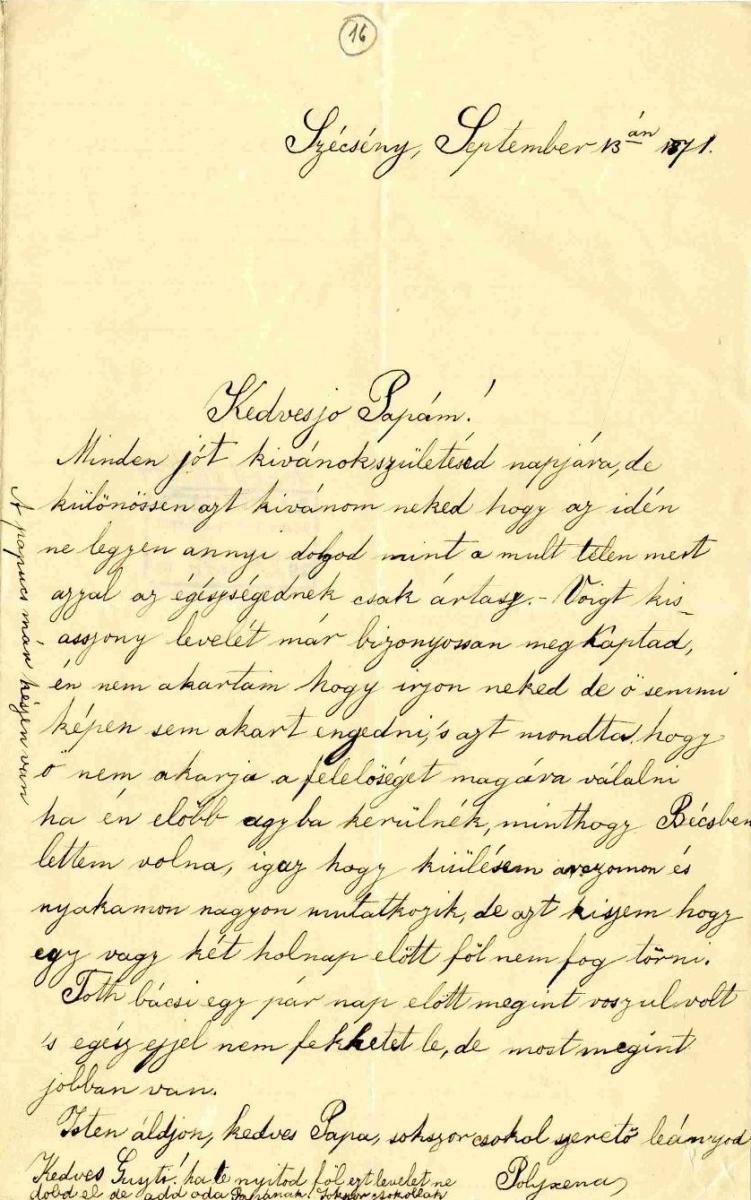 16
Szécsény, September 13 án 1871.
Kedves jo Papám!
Minden jót kivánok születésed napjára, de
különössen azt kivánom neked hogy az idén
ne legyen annyi dolgod mint a mult télen mert
azzal az égészségednek csak ártasz. – Voigt kis-
asszony levelét már bizonyossan meg kaptad,
én nem akartam hogy irjon neked de ö semmi
képen sem akart engedni, 's azt mondta hogy
ö nem akarja a felelöséget magáva válalni
ha én elöbb agyba kerülnék, minthogy Bécsben
lettem volna, igaz hogy kiülésem arczomon és
nyakamon nagyon mutatkozik, de azt hiszem hogy
egy vagy két holnap elött föl nem fog törni.
Toth bácsi egy pár nap elött megint roszul volt
's egész ejjel nem fekhetet le, de most megint
jobban van.
Isten áldjon, kedves Papa, sokszor csokol szerető leányod
Polyxena
Kedves Guszti! ha te nyitod föl ezt levelet ne
dobd el de add oda Papának! sokszor csokollak
A papucs már készen van